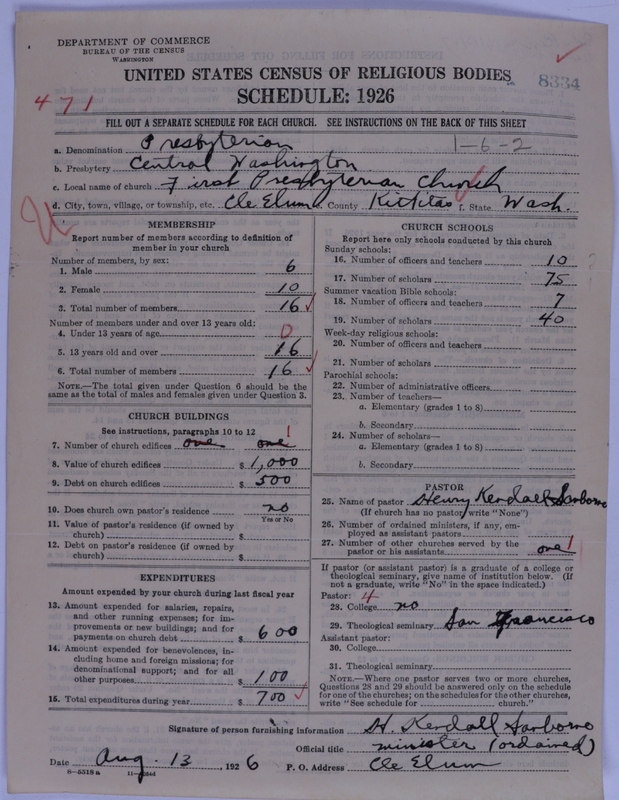 DEPARTMENT OF COMMERCE
BUREAU OF THE CENSUS
WASHINGTON
UNITED STATES CENSUS OF RELIGIOUS BODIES
8334
471
SCHEDULE: 1926
FILL OUT A SEPARATE SCHEDULE FOR EACH CHURCH. SEE INSTRUCTIONS ON THE BACK OF THIS SHEET
a. Denomination Presbyterian 1-6-2
b. Presbytery Central Washington
c. Local name of church First Presbyterian Church
d. City, town, village, or township, etc. Cle Elum County Kittitas f. State Wash.
MEMBERSHIP
Report number of members according to definition of
member in your church
Number of members, by sex:
1. Male 6
2. Female 10
3. Total number of members 16
Number of members under and over 13 years old:
4. Under 13 years of age 0
5. 13 years old and over 16
6. Total number of members 16
NOTE.—The total given under Question 6 should be the
same as the total of males and females given under Question 3.
CHURCH BUILDINGS
See instructions, paragraphs 10 to 12
7. Number of church edifices one one 1
8. Value of church edifices $ 1,000
9. Debt on church edifices $ 500
10. Does church own pastor's residence no
Yes or No
11. Value of pastor's residence (if owned by
church) $
12. Debt on pastor's residence (if owned by
church) $
EXPENDITURES
Amount expended by your church during last fiscal year
13. Amount expended for salaries, repairs,
and other running expenses; for im-
provements or new buildings; and for
payments on church debt $ 600
14. Amount expended for benevolences, in-
cluding home and foreign missions; for
denominational support; and for all
other purposes $ 100
15. Total expenditures during year $ 700
CHURCH SCHOOLS
Report here only schools conducted by this church
Sunday schools:
16. Number of officers and teachers 10
17. Number of scholars 75
Summer vacation Bible schools:
18. Number of officers and teachers 7
19. Number of scholars 40
Week-day religious schools:
20. Number of officers and teachers
21. Number of scholars
Parochial schools:
22. Number of administrative officers
23. Number of teachers—
a. Elementary (grades 1 to 8)
b. Secondary
24. Number of scholars—
a. Elementary (grades 1 to 8)
b. Secondary
PASTOR
25. Name of pastor Henry Kendall Sanborne
(If church has no pastor, write "None")
26. Number of ordained ministers, if any, em-
ployed as assistant pastors
27. Number of other churches served by the
pastor or his assistants one 1
If pastor (or assistant pastor) is a graduate of a college or
theological seminary, give name of institution below. (If
not a graduate, write "No" in the space indicated.)
Pastor: 4
28. College no
29. Theological seminary San Francisco
Assistant pastor:
30. College
31. Theological seminary
NOTE.—Where one pastor serves two or more churches,
Questions 28 and 29 should be answered only on the schedule
for one of the churches; on the schedules for the other churches,
write "See schedule for church."
Signature of person furnishing information H. Kendall Sanborne
Official title minister (ordained)
Date Aug. 13, 1926 P. O. Address Cle Elum
8—5518 a